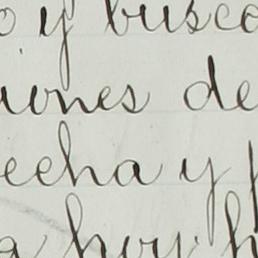 o y busco
unes de
echa y f
a hoy h